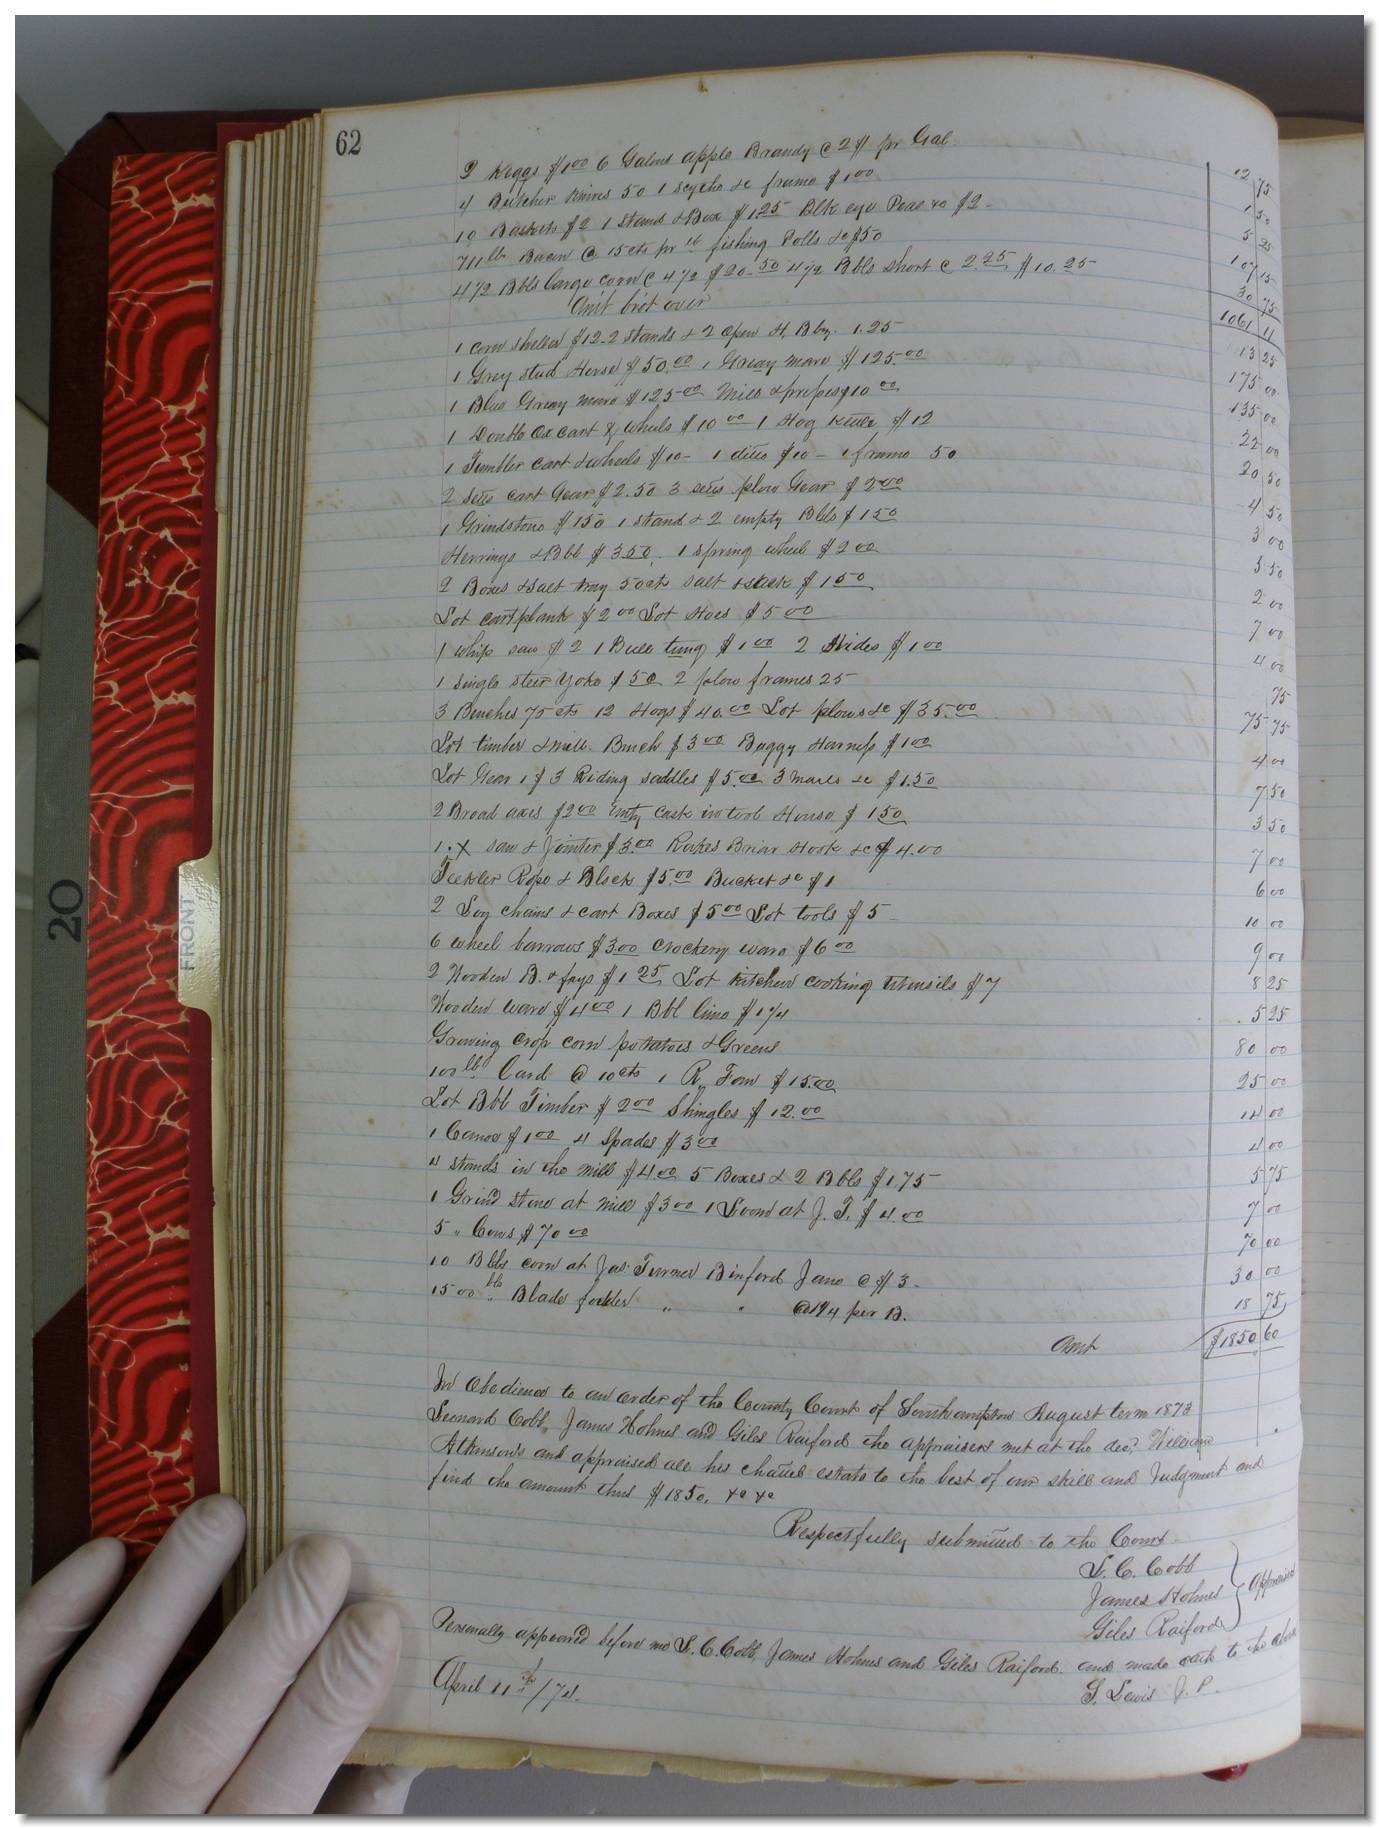 62
2 Keggs $1 00 6 Galons apple Brandy @ 2 $ pr Gal 12 75
4 Butcher Knives 50 1 scythe &c frame $1 00 1 50
10 Baskets $2 1 stand & Box $1.25 Blk eye Peas &c $2 - 5 25
711 lb Bacon @ 15 cts pr lb fishing Polls &c $ 50 107 15
4 1/2 Bbls large corn @ 4 1/2 $20.50 4 1/2 Bbls short @ 2.25 $10.25 30 75
Amt brot over 1061 11
1 corn sheller $12 - 2 stands & 2 open H. Bbg. 1.25 13 25
1 Grey stud Horse $50.00 1 Greay mare $125.00 175 00
1 Blue Greay mare $125.00 Mill & $10 00 135 00
1 Double Ox cart & wheels $10 00 - 1 Hog Kittle $12 22 00
1 Tumbler cart & wheels $10 - 1 ditto $10 - 1 frame 50 20 50
2 setts cart Gear $2.50 3 setts plow Gear $2 00 4 50
1 Grindstone $1 50 1 stand & 2 empty Bbls $1 50 3 00
Herrings & Bbl $3.50. 1 spring wheel $2 00 5 50
2 Boxes & salt tray 50 cts salt & sack $1 50 2 00
Lot cart plank $2 00 Lot Hoes $5 00 7 00
1 whip saw $2 1 Bull tung $1 00 2 Hides $1 00 4 00
1 single steer Yoke $ 50 2 plow frames 25 75
3 Benches 75 cts 12 Hogs $40.00 Lot plows &c $35.00 75 75
Lot timber & mill. Bench $3 00 Buggy Harness $1 00 4 00
Lot Gear 1 $ 3 Riding saddles $5.00 3 mauls &c $1.50 7 50
2 Broad axes $2 00 Emty cask in tool House $ 1 50 3 50
1 . X saw & Jointer $3.00 Rakes Briar Hook &c $4.00 7 00
Teckler Rope & Block $5.00 Bucket &c $1 6 00
2 Log chains & cart Boxes $5 00 Lot tools $5 - 10 00
6 wheel barrows $3.00 crockery ware $6 00 9 00
2 Wooden B. & $1 25 Lot kitchen cooking utensils $7 8 25
Wooden ware $4 00 1 Bbl lime $1 1/4 5 25
Growing crop corn potatoes & Greens 80 00
100 lb Lard @ 10 cts 1 R. Fan $15.00 25 00
Lot Bbl Timber $2 00 Shingles $12.00 14 00
1 Canoe $1 00 4 Spades $3 00 4 00
4 stands in the mill $4.00 5 Boxes & 2 Bbls $1.75 5 75
1 Grind stone at mill $3 00 1 Loom at J. T. $4.00 7 00
5 " Cows $70 00 70 00
10 Bbls corn at Jas. Turner Binford Jane @ $3 - 30 00
1500 lbs Blade fodder " " @ 1 1/4 per B. 18 75
Amt $1850 60
In Obedience to an order of the County Court of Southampton August term 1873
Leonard Cobb, James Holmes and Giles Raiford the appraisers met at the decd William
Atkinson's and appraised all his chattel estate to the best of our skill and Judgment and
find the amount thus $1850. &c &c
Respectfully submitted to the Court
L. C. Cobb
James Holmes
Giles Raiford
Appraisers
Personally appeared before me L. C. Cobb, James Holmes and Giles Raiford. and made oath to the above
April 11th /74.
G. Lewis J. P.
20
FRONT